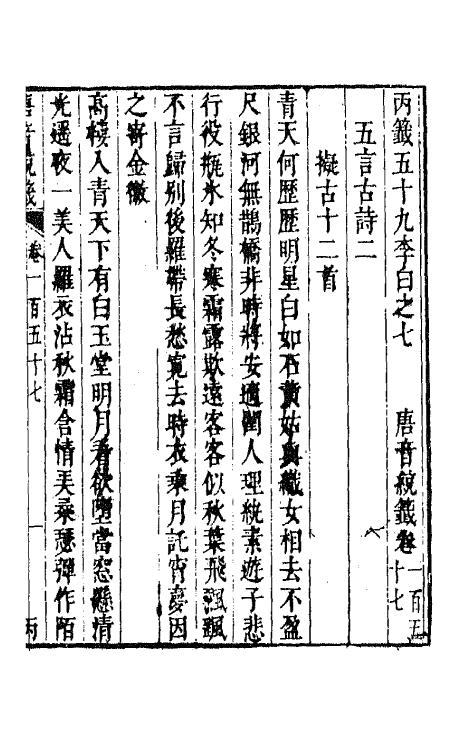 丙籤五十九李白之七　唐音統籤卷一百五十七
五言古詩二
擬古十二首
青天何歷歷明星白如石黃姑與織女相去不盈
尺銀河無鵲橋非時將安適閨人理紈素遊子悲
行役瓶氷知冬寒霜露欺遠客客似秋葉飛飄颻
不言歸別後羅帶長愁寬去時衣乘月託宵夢因
之寄金徽
高樓入青天下有白玉堂明月看欲墮當窓懸清
光遥夜一美人羅衣沾秋霜含情弄柔瑟彈作陌
唐音統籤　卷一百五十七　一　丙